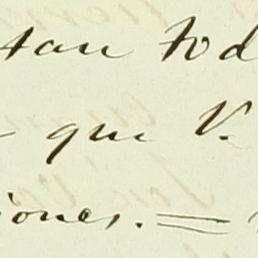 tan tod
que V.
iones. =